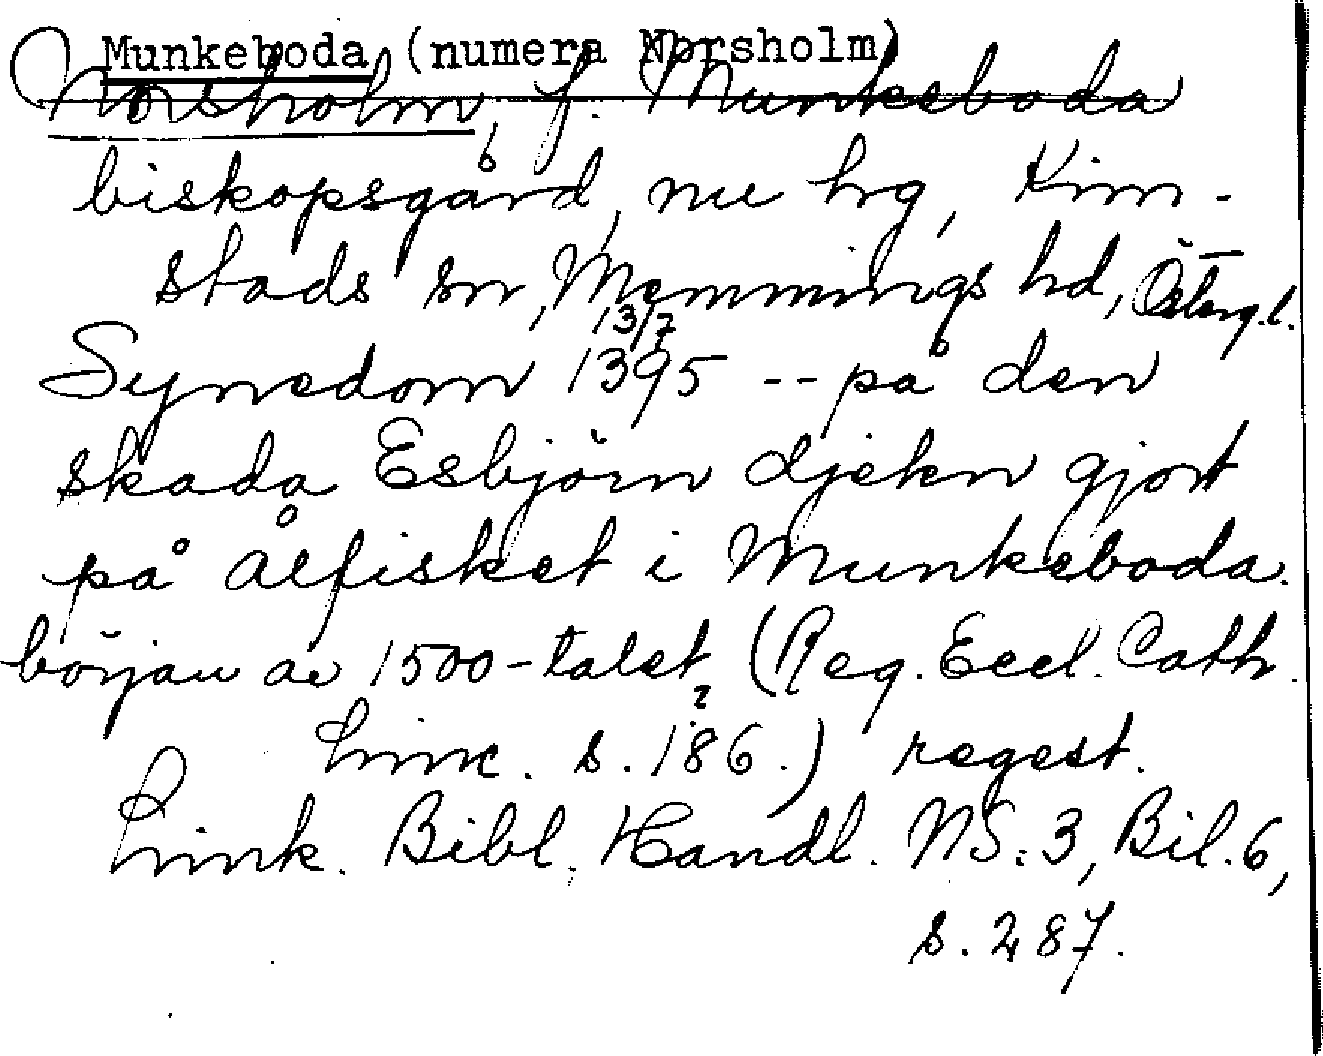 Munkeboda (numera Norsholm)
Norsholm, f. Munkeboda
biskopsgård, nu hrg, Kim-
stads sn, Memmings hd, Österg.l.
13/7
Synedom 1395 -- på den
skada Esbjörn djekn gjort
på ålfisket i Munkeboda.
början av 1500-talet (Reg. Eccl. Cath.
Linc. s. 186.) regest.
Link. Bibl. Handl. NS: 3, Bil. 6,
s. 287.